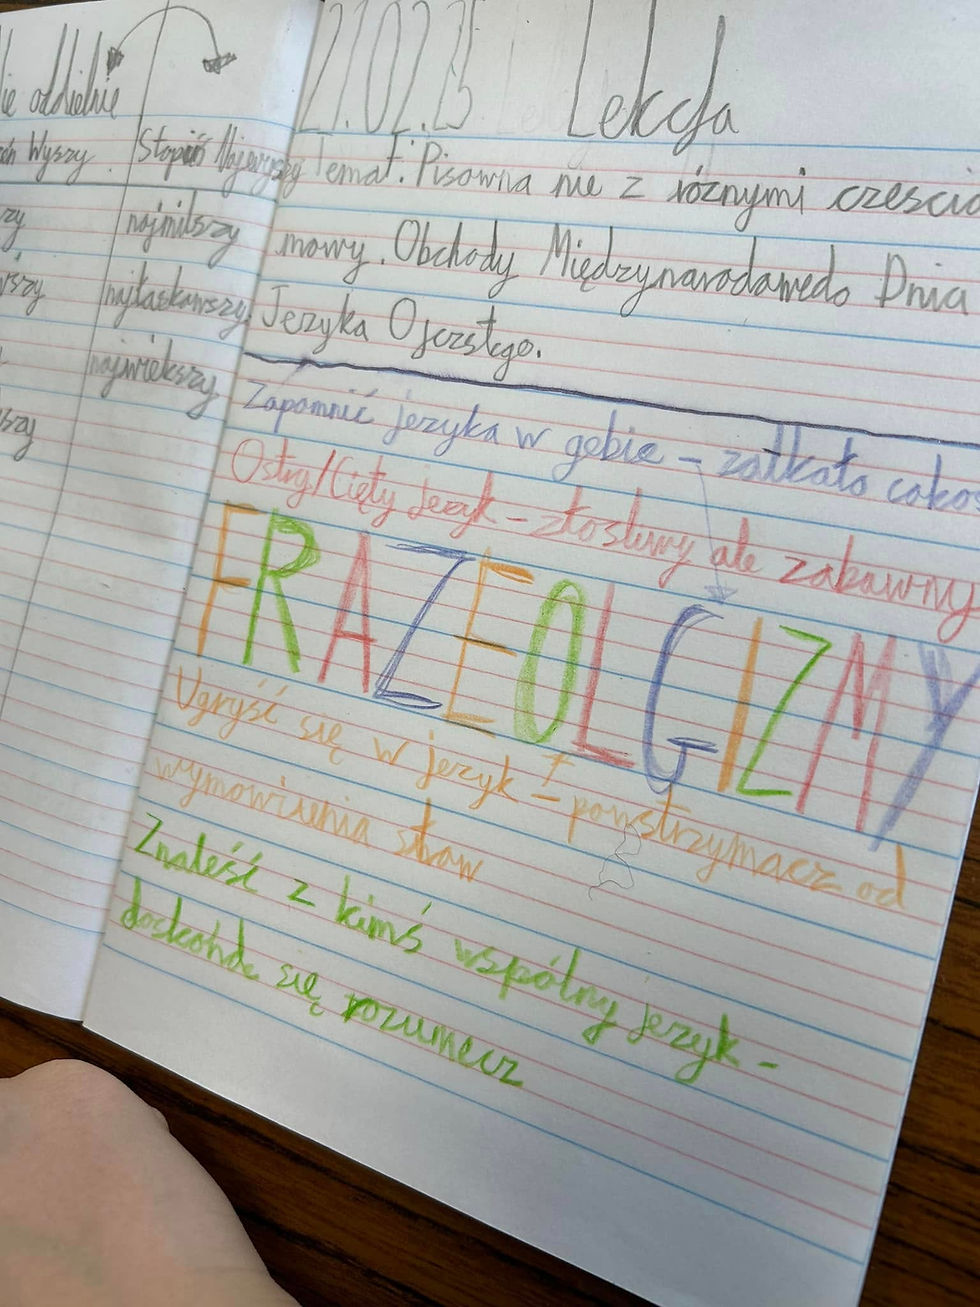 ie oddzielnie
Wyszy
Stopień Najwyższy
najmilszy
najłaskawszy
największy
szy
21.02.25 Lekcja
Temat: Pisownia nie z róznymi częścia
mowy. Obchody Międzynarodowedo Dnia
Języka Ojczstego.
Zapomnić języka w gębie – zatkało cako
Ostry/Cięty język – złosliwy ale zabawny
FRAZEOLGIZMY
Ugryść się w język – powstrzymacz od
wymowienia słow
Znaleść z kimś wspólny jezyk –
doskonale się rozumecz